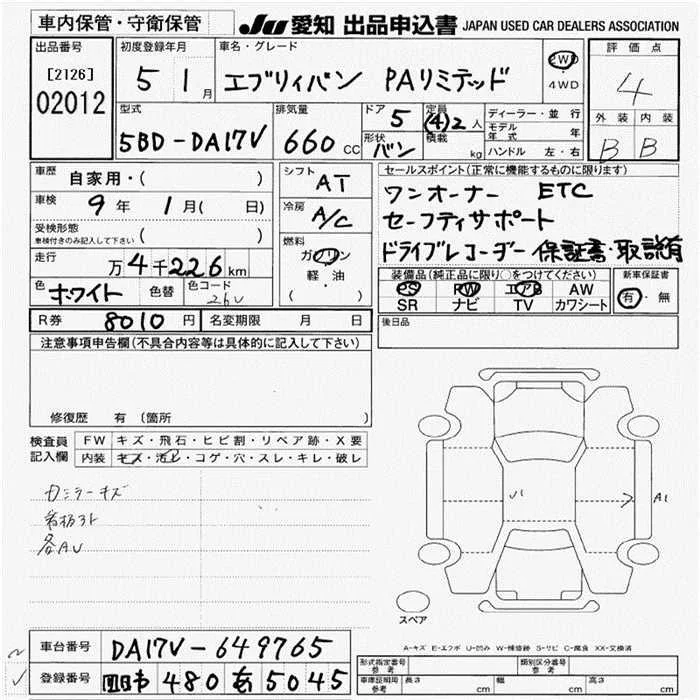 車内保管・守衛保管 JU愛知 出品申込書 JAPAN USED CAR DEALERS ASSOCIATION
出品番号 初度登録年月 車名・グレード 評価点
[2126] 5 1月 エブリィバン PAリミテッド 2WD・4WD 4
02012
型式 排気量 ドア 5 定員 (4)2人 ディーラー・並行 外装 内装
5BD-DA17V 660cc 形状 バン 積載 kg モデル年式 年 B B
ハンドル 左・右
車歴 自家用・( ) シフト AT セールスポイント(正常に機能するものに限ります)
車検 9年 1月( 日) 冷房 A/C ワンオーナー ETC
受検形態 ( ) セーフティサポート
車検付きのみ記入して下さい 燃料 ガソリン ドライブレコーダー 保証書・取説有
走行 万4千226km 軽・油 装備品(純正品に限り○をつけてください) 新車保証書
色 ホワイト 色替 色コード 26U ( ) PS PW エアB AW 有・無
SR ナビ TV カワシート
R券 8010円 名変期限 月 日 後日品
注意事項申告欄(不具合内容等は具体的に記入して下さい)
修復歴 有 (箇所 )
検査員 FW キズ・飛石・ヒビ割・リペア跡・X要
記入欄 内装 キズ・汚レ・コゲ・穴・スレ・キレ・破レ
カミラーキズ
各AU
A1
スペア
A-キズ E-エクボ U-凹み W-補修跡 S-サビ C-腐食 XX-交換済
車台番号 DA17V-649765 形式指定番号 参考 類別区分番号 参考
登録番号 480 を 5045 車庫証明用 参考 長さ cm 幅 cm 高さ cm